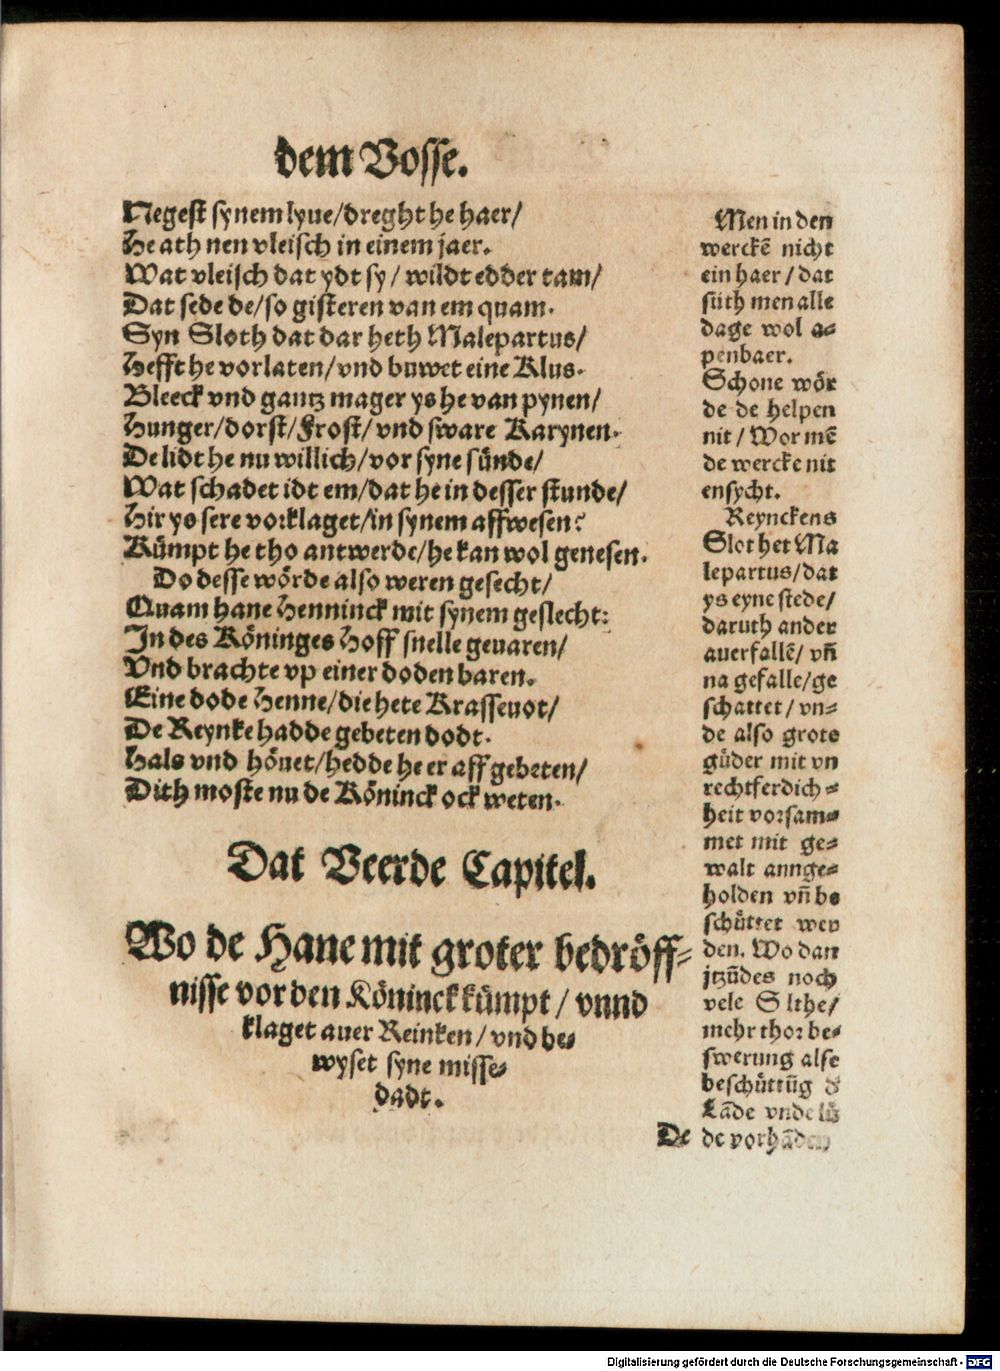 dem Vosse.
Negest synem lyue/dreght he haer/
He ath nen vleisch in einem jaer.
Wat vleisch dat ydt sy/ wildt edder tam/
Dat sede de/so gisteren van em quam.
Syn Sloth dat dar heth Malepartus/
Hefft he vorlaten/vnd buwet eine Klus.
Bleeck vnd gantz mager ys he van pynen/
Hunger/dorst/Frost/vnd sware Karynen.
De lidt he nu willich/vor syne sünde/
Wat schadet idt em/dat he in desser stunde/
Hir ys sere vorklaget/in synem affwesen?
Kümpt he tho antwerde/he kan wol genesen.
Do desse wörde also weren gesecht/
Quam hane Henninck mit synem geslecht:
In des Köninges Hoff snelle geuaren/
Vnd brachte vp einer doden baren.
Eine dode Henne/die hete Krassevot/
De Reynke hadde gebeten dodt.
Hals vnd höuet/hedde he er aff gebeten/
Dith moste nu de Köninck ock weten.
Dat Veerde Capitel.
Wo de Hane mit groter bedröff-
nisse vor den Köninck kümpt/ vnnd
klaget auer Reinken/ vnd be-
wyset syne misse-
dadt.
De
Men in den
werckē nicht
ein haer/ dat
süth men alle
dage wol a-
penbaer.
Schone wör
de de helpen
nit/ Wor mē
de wercke nit
ensycht.
Reynckens
Slot het Ma
lepartus/dat
ys eyne stede/
daruth ander
auerfallē/ vñ
na gefalle/ge
schattet/ vn-
de also grote
güder mit vn
rechtferdich-
heit vorsam-
met mit ge-
walt annge-
holden vñ be
schüttet wer
den. Wo dan
jtzūdes noch
vele Slthe/
mehr thor be-
swerung alse
beschüttūg d
Lāde vnde lü
de vorhāden
Digitalisierung gefördert durch die Deutsche Forschungsgemeinschaft - DFG